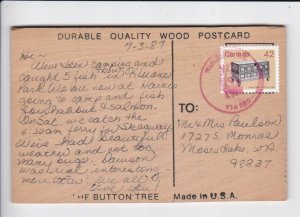 DURABLE QUALITY WOOD POSTCARD
7-3-87
Hi -
Weve been camping and
caught 5 fish in Kluane
TROUT
Park We are now at Haines
going to camp and fish
for halibut & salmon
On Sat. we catch the
6:30 am ferry for Skagway
We've had beautiful
weather and not too
many bugs. Dawson
was real interesting
more later. We all
love you!
Canada 42
TO:
Mr & Mrs Paulson
1727 S. Monroe
Moses Lake, WA
98837
THE BUTTON TREE
Made in U.S.A.